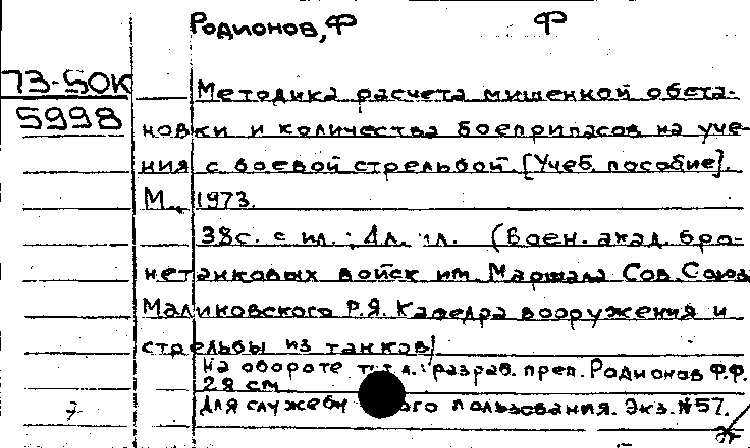 Родионов, Ф Ф
73-50К
Методика расчета мишенной обста-
5998
новки и количества боеприпасов на уче-
ния с боевой стрельбой. [Учеб. пособие].
М., 1973.
38с. с ил.; 4л. ил. (Воен. акад. бро-
нетанковых войск им. Маршала Сов. Союза
Малиновского Р.Я. Кафедра вооружения и
стрельбы из танков)
На обороте т.л.: разраб. преп. Родионов Ф.Ф.
28 см
Для служебн ого пользования. Экз. №57.